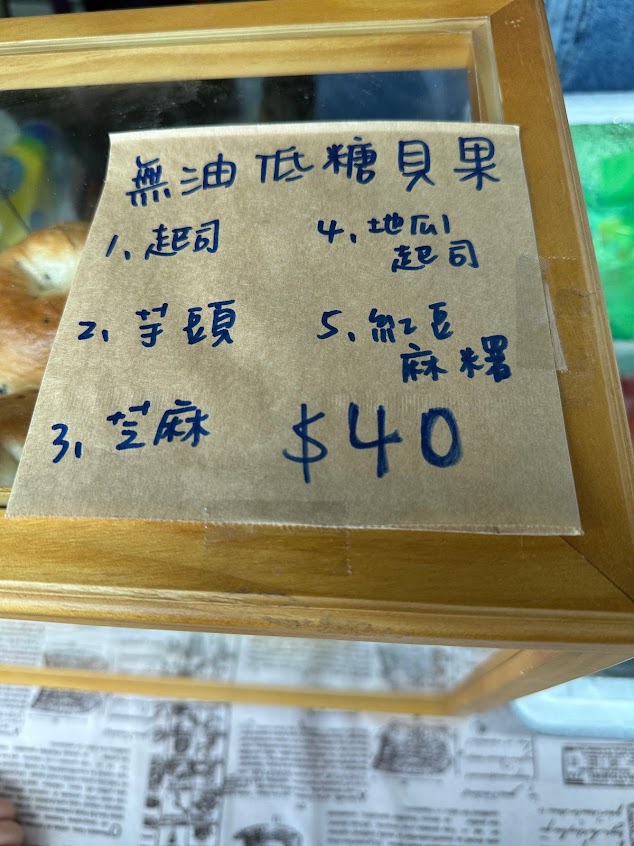 無油低糖貝果
1. 起司
2. 芋頭
3. 芝麻
4. 地瓜
起司
5. 紅豆
麻糬
$40